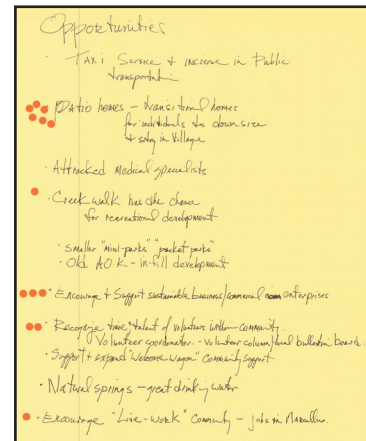 Opportunities
· Taxi Service + increase in Public
transportation
Patio homes – transitional homes
for individuals to downsize
+ stay in Village
· Attracked Medical specialists
· Creek walk has the chance
for recreational development
· smaller "mini-parks" "pocket parks"
· Old AOK – in-fill development
· Encourage + Support sustainable business/commercial enterprises
· Recognize time/talent of volunteers within community.
Volunteer coordinator – volunteer column/local bulletin board.
· Support + expand "Welcome wagon" community support
· Natural springs – great drinking water
· Encourage "Live-work" Community – jobs in Marcellus.